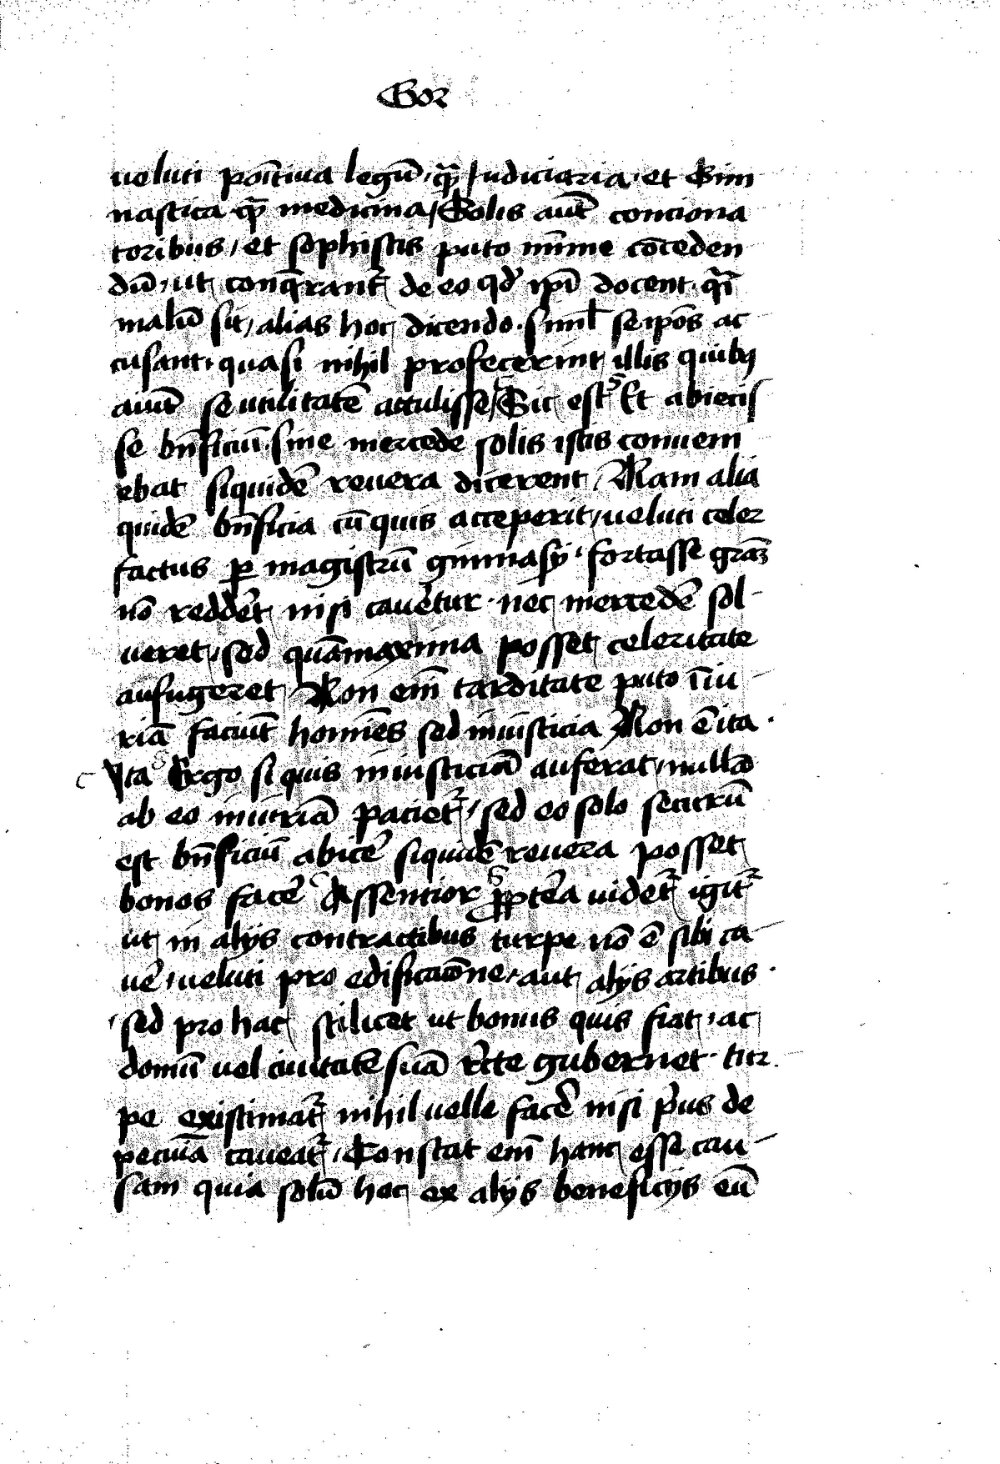 Gor
ueluti poı̄tiua legū, q̄ Iudiciaria, et Gim
nastica q̄ medicina / Solis aut̄ conciona
toribus, et sophistis puto mı̄me cōceden
dū, ut conq̄rant᷑ de eo qđ ipı̄ docent. q̄ı
malū sit, alias hoc dicendo. siml̄ seipōs ac
cusant, quasi nihil profecerint illis quibꝫ
aiūt se utilitatē attulisse / Sic est᷑ Et abiecis
se bn̄ficiū, sine mercede solis istis conueni
ebat siquidē reuera dicerent / Nam alia
quidē bn̄ficia cū quis acceperit, ueluti celer
factus ꝑ magistrū gimnasij, fortasse grāꝫ
nō redder̄t nisi cauer̄tur. nec mercedē sol
ueret, sed quāmaxima posset celeritate
aufugeret, Non em̄ tarditate puto īiu
riā faciūt homı̄es sed iniusticia Non ē ita
Ita s Ergo si quis iniusticiā auferat, nullā
ab eo iniuriā patiet᷑, sed eo solo secutrū
est bn̄ficiū abicer̄ siquidē reuera posset
bonos facer̄ c Assentior s ꝓpter̄a uidet᷑ igit᷑
ut in alijs contractibus turpe nō ē sibi ca
uer̄, ueluti pro edificatōne, aut alijs artibus
, sed pro hac scilicet ut bonus quis fiat, ac
domū uel ciuitatē suā rc̄te gubernet. tur
pe existimat᷑ nihil uelle facer̄ nisi pı̄us de
pecuı̄a caueat᷑, Constat em̄ hanc esse cau
sam quia solū hec ex alijs beneficijs eū